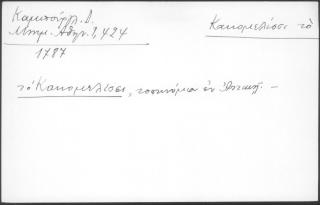 Καμπούρογλ. Δ.
Μνημ. Αθην. 3, 424
1787
Κακομελίσσι τὸ
τὸ Κακομελίσσι, τοπωνύμιο ἐν Ἀττικῇ. —